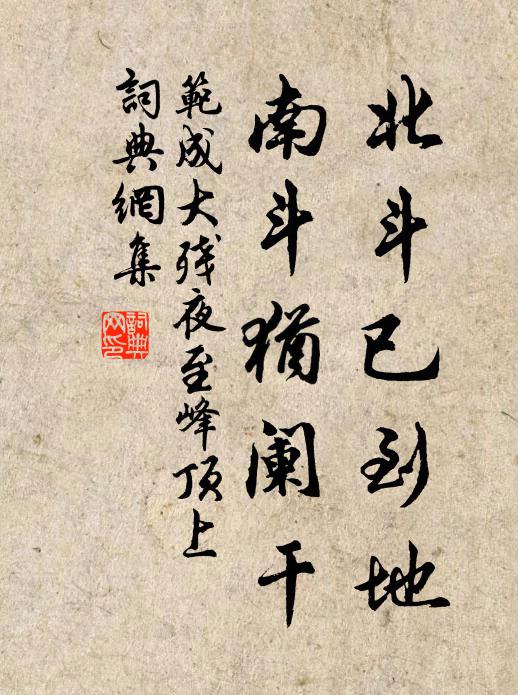 北斗已到地
南斗犹阑干
範成大残夜至峰顶上
詞典網集
詞典
网印